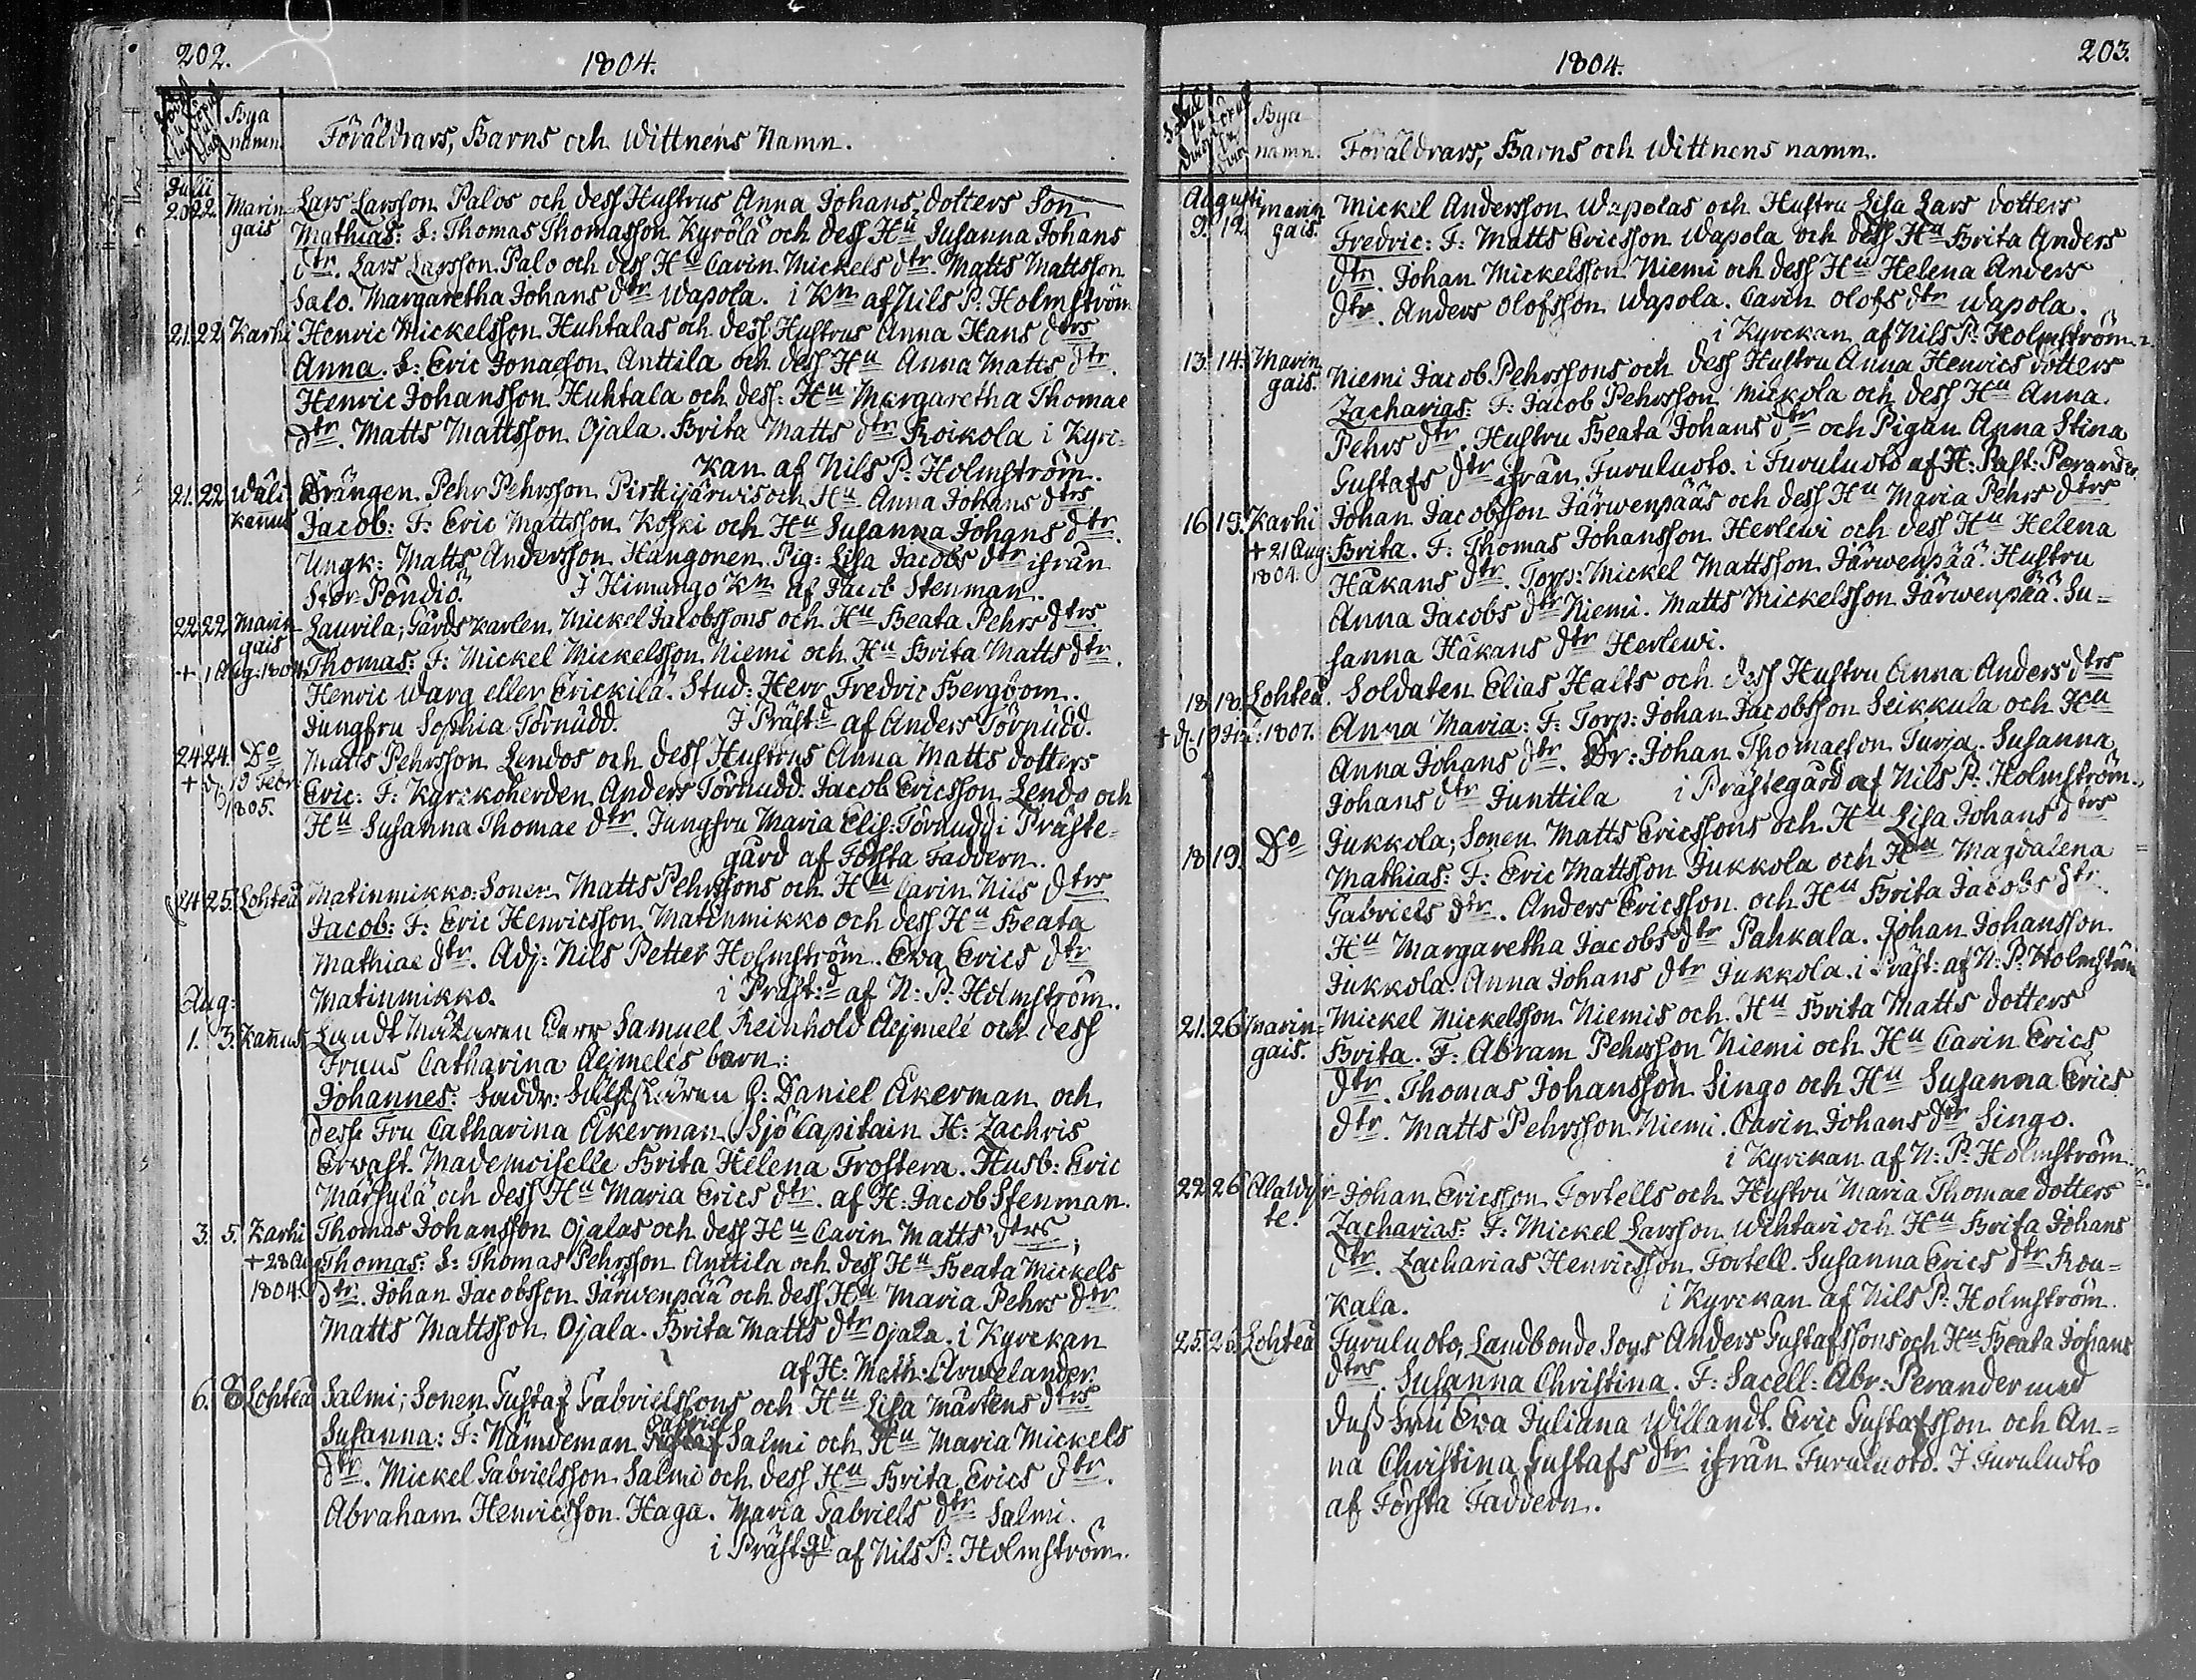 202.
1804.
Bya
namn.
Föräldrars, Barns och Wittnens Namn.
Julii
20 22 Marin- Lars Larsson Palos och dess Hustrus Anna Johans dotters Son
gais Mathias: S: Thomas Thomasson Kyrölä och dess Hu Susanna Johans
dtr. Lars Larsson Palo och dess Hu Carin Mickels dtr. Matts Mattsson
Salo. Margaretha Johans dtr Wapola. i Kn af Nils P: Holmström
21. 22 Karhi Henric Mickelsson Huhtalas och dess Hustrus Anna Hans dtrs
Anna. S: Eric Jonaeson Anttila och dess Hu Anna Matts dtr.
Henric Johansson Huhtala och dess: Hu Margaretha Thomae
dtr. Matts Mattsson Ojala. Brita Matts dtr Roikola i Kyri-
kan af Nils P: Holmström.
21. 22. Wäli Drängen Pehr Pehrsson Pirttijärwis och Hu Anna Johans dtrs
kannus Jacob: F: Eric Mattsson Koski och Hu Susanna Johans dtr.
Ungk: Matts Andersson Hangonen. Pig: Lisa Jacobs dtr ifrån
Stor Pöndiö. I Himango Kn af Jacob Stenman.
22 22 Marin Lauvila; Gårdskarlen Mickel Jacobssons och Hu Beata Pehrs dtrs
gais
+ 1 Aug. 1804. Thomas: F: Mickel Mickelsson Niemi och Hu Brita Matts dtr.
Henric Warg eller Erickilä. Stud: Herr Fredric Bergbom.
Jungfru Sophia Törnudd. I Präst:d af Anders Törnudd.
24 24. Do Matts Pehrsson Lendos och dess Hustrus Anna Matts dotters
+ d. 19 Febr. 1805. Eric: F: Kyrckoherden Anders Törnudd. Jacob Ericsson Lendo och
Hu Susanna Thomae dtr. Jungfru Maria Elis: Törnudd i Präste-
gård af Första Faddern.
24 25. Lohteå Matinmikko: Sonen Matts Pehrssons och Hu Carin Nils dtrs
Jacob: F: Eric Henricsson Matinmikko och dess Hu Beata
Mathiae dtr. Adj: Nils Petter Holmström. Eva Erics dtr
Matinmikko. i Präst:d af N: P: Holmström.
Aug:
1. 3. Kannus Landt Mätaren Herr Samuel Reinhold Aejmelé och dess
Fruus Catharina Aejmeles barn:
Johannes: Faddr: H: Daniel Åkerman och
dess Fru Catharina Åkerman. Sjö Capitain H: Zachris
Erwast. Mademoiselle Brita Helena Frostera. Husb: Eric
Märsylä och dess Hu Maria Erics dtr. af H: Jacob Stenman.
3. 5. Karhi Thomas Johansson Ojalas och dess Hu Carin Matts dtrs;
+ 28 Aug Thomas: S: Thomas Pehrsson Anttila och dess Hu Beata Mickels
1804. dtr. Johan Jacobsson Järwenpää och dess Hu Maria Pehrs dtr
Matts Mattsson Ojala. Brita Matts dtr Ojala. i Kyrckan
af H: Math: Arwelander.
6. 8 Lohteå Salmi; Sonen Gustaf Gabrielssons och Hu Lisa Mårtens dtrs
Gabriel
Susanna: F: Nämdeman Gustaf Salmi och Hu Maria Mickels
dtr. Mickel Gabrielsson Salmi och dess Hu Brita Erics dtr.
Abraham Henricsson Haga. Maria Gabriels dtr Salmi.
i Prästgd af Nils P: Holmström.
1804.
203.
Bya
namn.
Föräldrars, Barns och Wittnens namn.
Augusti
9. 12. Marin Mickel Andersson Wapolas och Hustru Lisa Lars dotters
gais. Fredric: F: Matts Ericsson Wapola och dess Hu Brita Anders
dtr. Johan Mickelsson Niemi och dess Hu Helena Anders
dtr. Anders Olofsson Wapola. Carin Olofs dtr Wapola.
i Kyrckan af Nils P: Holmström.
13. 14. Marin Niemi Jacob Pehrssons och dess Hustru Anna Henrics dotters
gais. Zacharias: F: Jacob Pehrsson Mickola och dess Hu Anna
Pehrs dtr. Hustru Beata Johans dtr och Pigan Anna Stina
Gustafs dtr ifrån Furuluoto. i Furuluoto af H: Past: Perander.
16 19. Karhi Johan Jacobsson Järwenpääs och dess Hu Maria Pehrs dtrs
+ 21 Aug: Brita. F: Thomas Johansson Herlewi och dess Hu Helena
1804. Håkans dtr. Torp: Mickel Mattsson Järwenpää. Hustru
Anna Jacobs dtr Niemi. Matts Mickelsson Järwenpää. Su-
sanna Håkans dtr Herlewi.
18 18. Lohteå. Soldaten Elias Halts och dess Hustru Anna Anders dtrs
1807. Anna Maria: F: Torp: Johan Jacobsson Seikkula och Hu
Anna Johans dtr. Dr: Johan Thomaeson Turja. Susanna
Johans dtr Junttila i Prästegård af Nils P: Holmström.
18 19. Do Jukkola; Sonen Matts Ericssons och Hu Lisa Johans dtrs
Mathias: F: Eric Mattsson Jukkola och Hu Magdalena
Gabriels dtr. Anders Ericsson och Hu Brita Jacobs dtr.
Hu Margaretha Jacobs dtr Pahkala. Johan Johansson
Jukkola. Anna Johans dtr Jukkola. i Präst: af N: P: Holmström
21. 26 Marin- Mickel Mickelsson Niemis och Hu Brita Matts dotters
gais. Brita. F: Abram Pehrsson Niemi och Hu Carin Erics
dtr. Thomas Johansson Singo och Hu Susanna Erics
dtr. Matts Pehrsson Niemi. Carin Johans dtr Singo.
i Kyrckan af N: P: Holmström
22 26 Alawyr- Johan Ericsson Tortells och Hustru Maria Thomae dotters
te. Zacharias: F: Mickel Larsson Wihtari och Hu Brita Johans
dtr. Zacharias Henricsson Tortell. Susanna Erics dtr Rou-
kala. i Kyrckan af Nils P: Holmström.
25. 26. Lohteå Furuluoto, Landbonde Sons Anders Gustafssons och Hu Beata Johans
dtrs. Susanna Christina. F: Sacell: Abr: Perander med
dess Fru Eva Juliana Willandt. Eric Gustafsson och An-
na Christina Gustafs dtr ifrån Furuluoto. I Furuluoto
af Första Faddern.